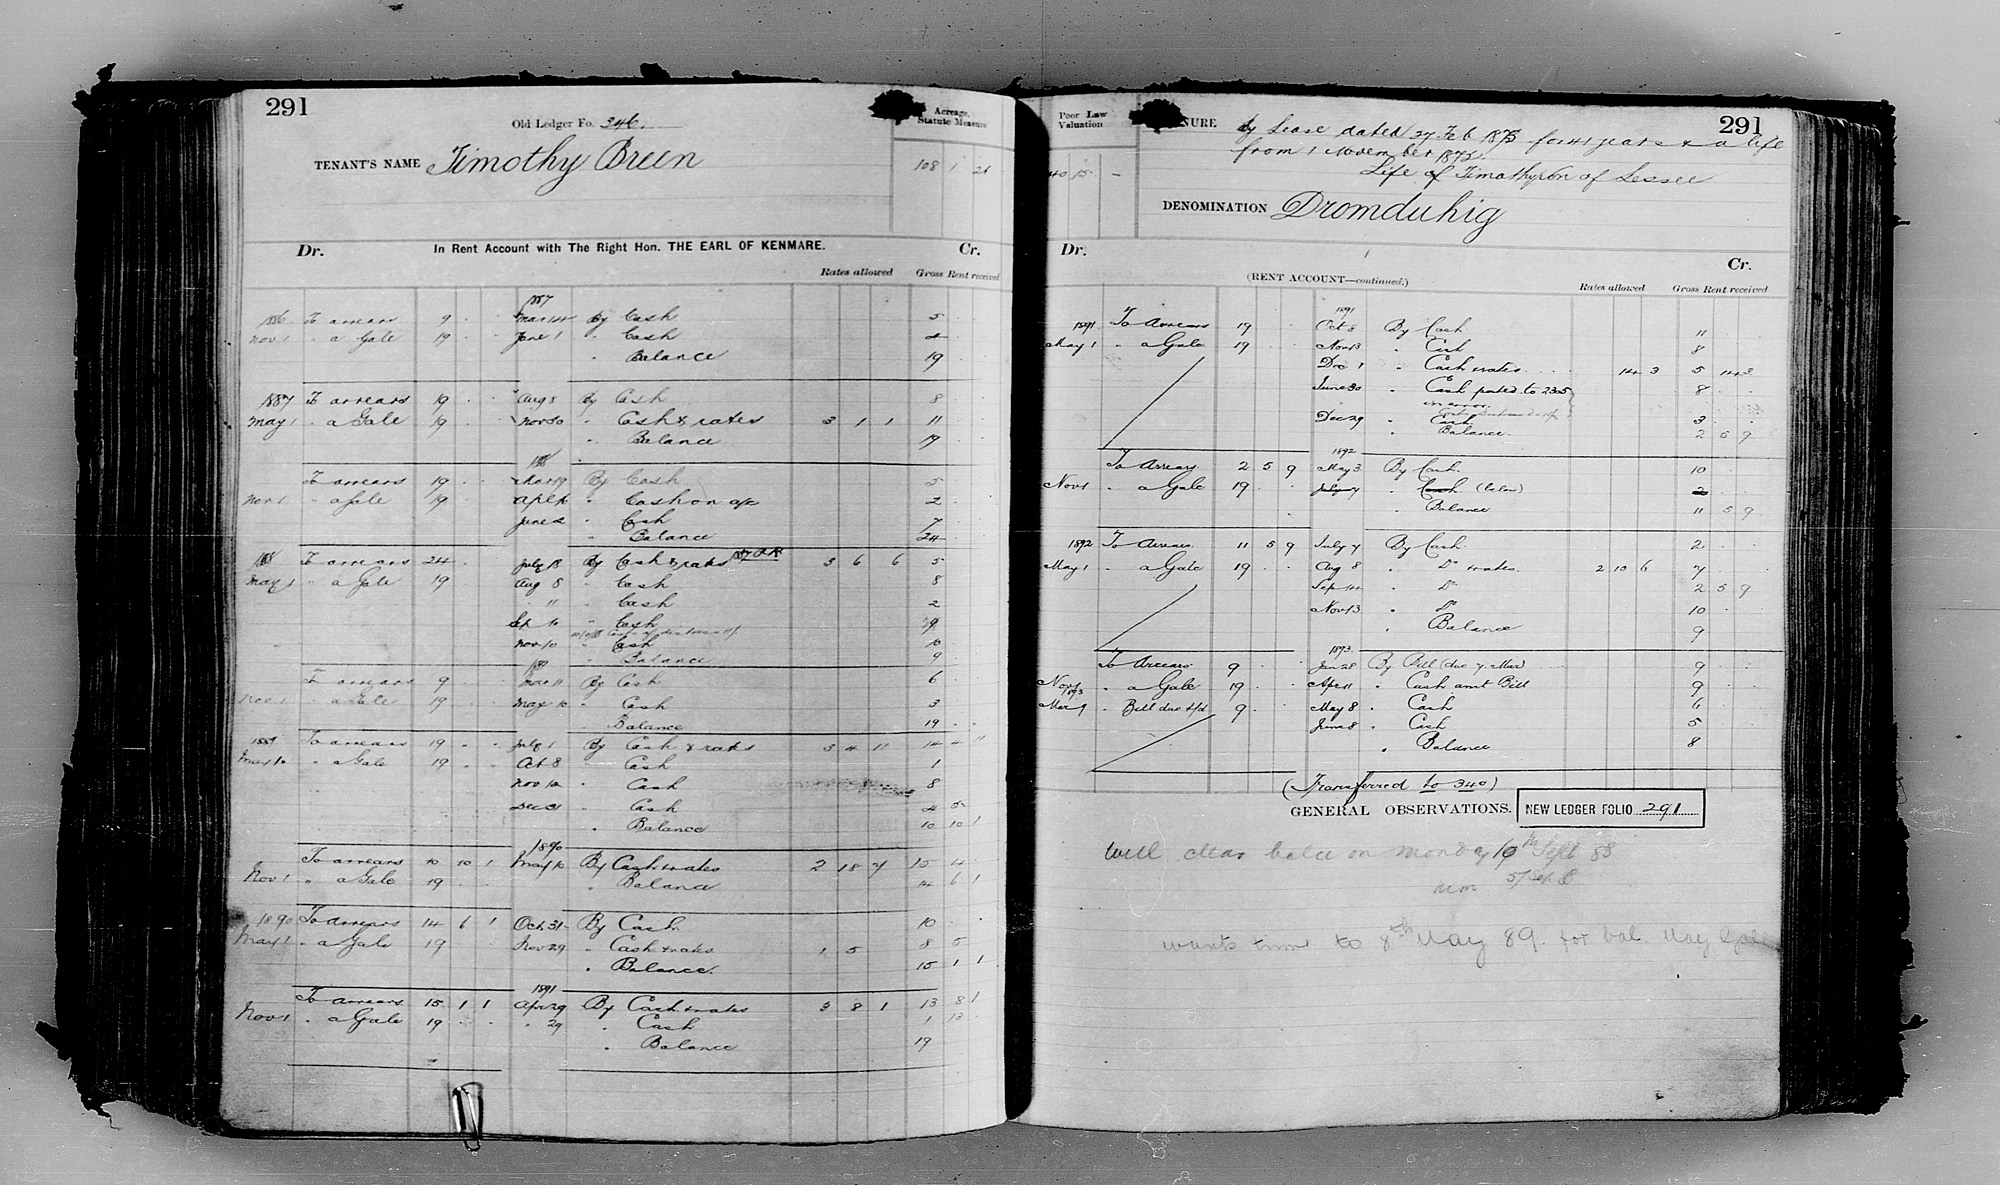 291
Old Ledger Fo. 346.
TENANT'S NAME Timothy Breen
Acreage, Statute Measure
108 1 26
In Rent Account with The Right Hon. THE EARL OF KENMARE.
Dr. Cr.
Rates allowed Gross Rent received
1887
1886 To arrears 9 . . Mar 14 By Cash 5
Nov 1 " a Gale 19 . . June 1 " Cash 4
" Balance 19
1887 To arrears 19 . . Aug 8 By Cash 8
May 1 " a Gale 19 . . Nov 30 " Cash & rates 3 1 1 11
" Balance 19
188
To arrears 19 . . Mar 19 By Cash 5
Nov 1 " a Gale 19 " Cash on a/c 2
June 2 " Cash 7
" Balance 24
188 To arrears 24 . July 18 By Cash & rates 3 6 6 5
May 1 " a Gale 19 Aug 8 " Cash 8
" 11 " Cash 2
Sep 10 " Cash
Nov 10 " Cash 10
" Balance 9
To arrears 9 . . Mar 11 By Cash 6
Nov 1 " a Gale 19 May 10 " Cash 3
Balance 19 . .
1889 To arrears 19 . . July 1 By Cash & rates 3 4 11 14 4 11
May 1 " a Gale 19 . . Oct 8 " Cash 1
Nov 12 " Cash 8
Dec 31 " Cash 4 5
" Balance 10 10 1
1890
To arrears 10 10 1 May 10 By Cash & rates 2 18 7 15 4
Nov 1 " a Gale 19 . . " Balance 14 6 1
1890 To arrears 14 6 1 Oct 31 By Cash 10 . .
May 1 " a Gale 19 Nov 29 " Cash & rates 1 5 8 5
" Balance. 15 1 1
1891
To arrears 15 1 1 Apr 29 By Cash & rates 3 8 1 13 8 1
Nov 1 " a Gale 19 . . " 29 " Cash 1 13
" Balance 19
291
Poor Law Valuation
40 15 -
NURE By Lease dated 27 Feb 1875 for 41 years & a life
from 1 November 1875.
Life of Timothy son of Lessee
DENOMINATION Dromduhig
Dr. Cr.
(RENT ACCOUNT—continued.)
Rates allowed Gross Rent received
1891
1891 To Arrears 19 . . Oct 8 By Cash 11
May 1 " a Gale 19 . . Nov 13 " Cash 8
Dec 1 " Cash & rates 14 3 5 14 3
June 30 " Cash posted to 2305 8
in error
Dec 29 " Cash 3
" Balance 2 5 9
1892
To Arrears 2 5 9 May 3 By Cash 10
Nov 1 " a Gale 19 . . July 7 " Cash (below) 2
" Balance 11 5 9
1892 To Arrears 11 5 9 July 7 By Cash 2
May 1 " a Gale 19 . . Aug 8 " Do & rates 2 10 6 7
Sep 14 " Do 2 5 9
Nov 13 " Do 10
" Balance 9
1893
To Arrears 9 . . Jan 28 By Bill (due 7. Mar) 9
Nov 1 " a Gale 19 . . Apr 11 " Cash amt Bill 9
1893
Mar 9 " Bill due 9 . . May 8 " Cash 6
June 8 " Cash 5
" Balance 8
(Transferred to 340)
GENERAL OBSERVATIONS. NEW LEDGER FOLIO 291
Will clear balce on Monday 10th Sept 88
5/Sep 8
wants time to 8th May 89. for bal. May Gale